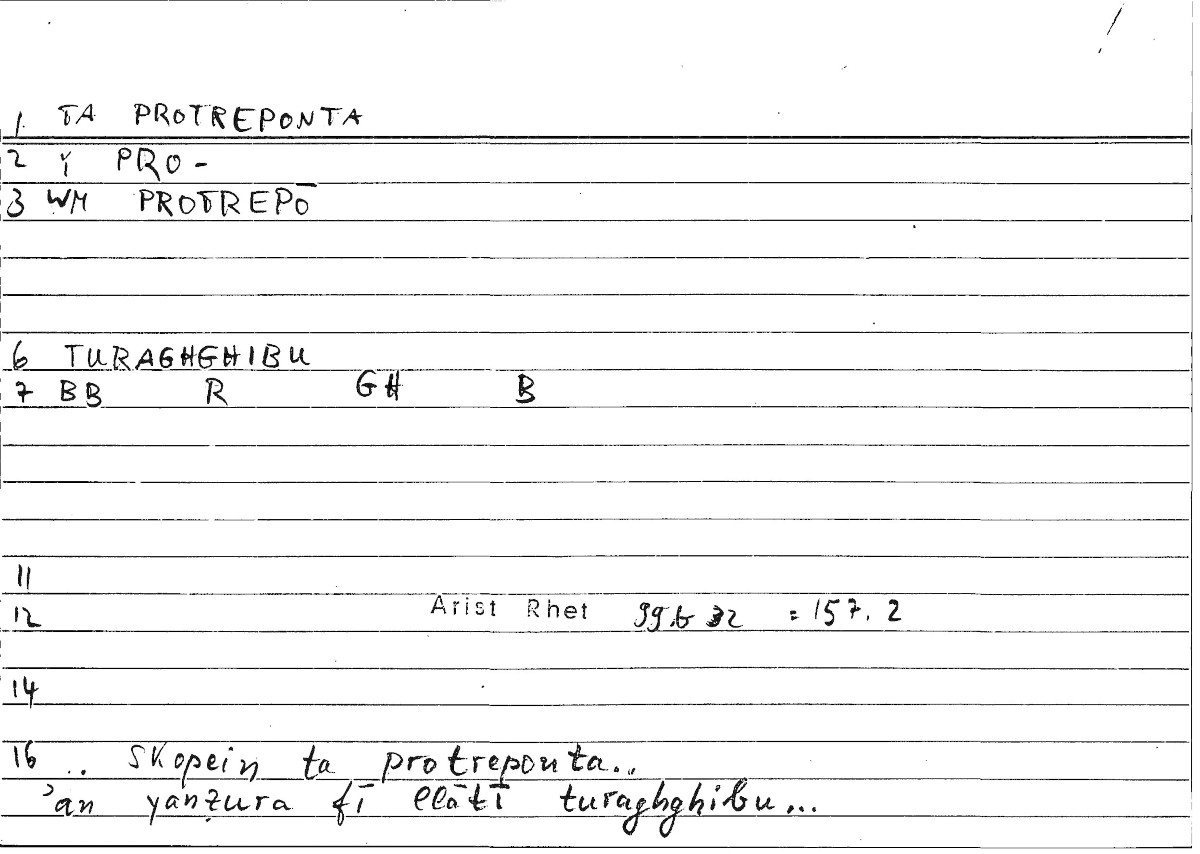 1. TA PROTREPONTA
2 Y PRO-
3 WM PROTREPŌ
6 TURAGHGHIBU
7 BB R GH B
11
12 Arist Rhet 99b32 = 157.2
14
16 .. skopein ta protreponta..
ʾan yanẓura fī llātī turaghghibu...